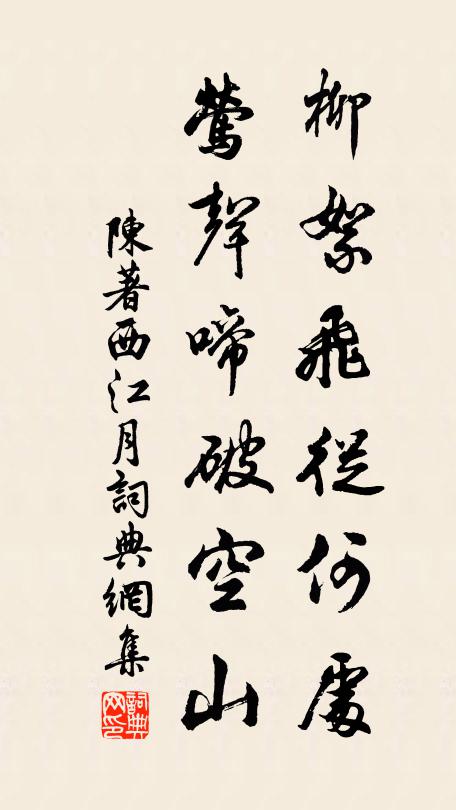 柳絮飛從何處
鶯聲啼破空山
陳著西江月詞典網集
詞典网印